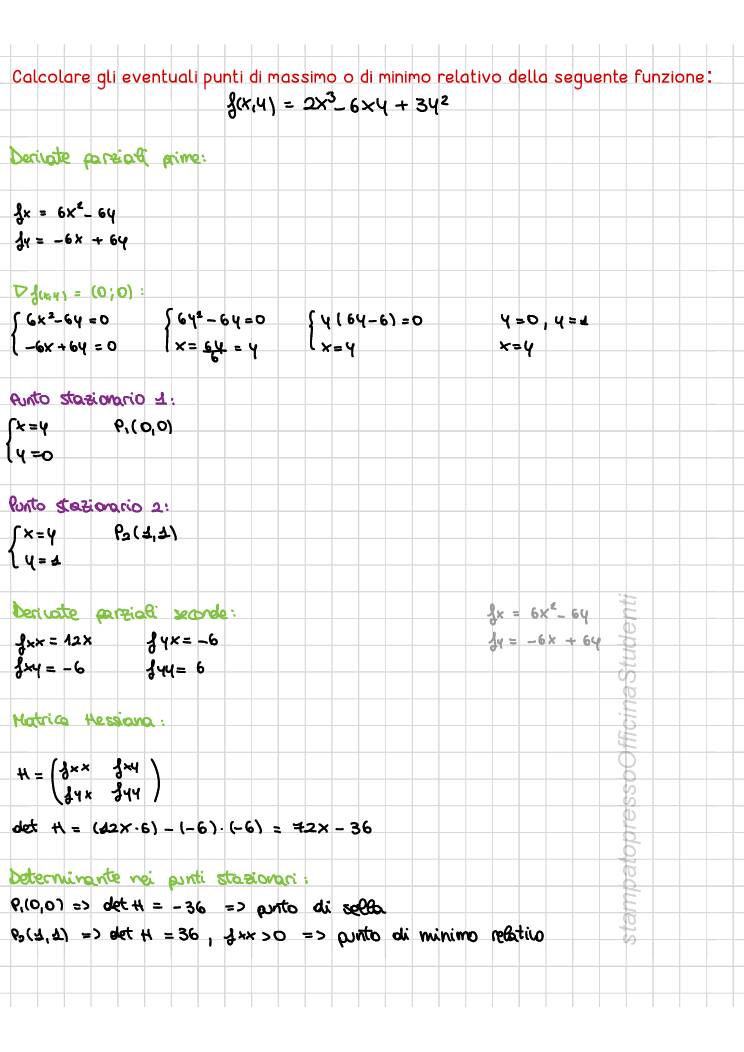 Calcolare gli eventuali punti di massimo o di minimo relativo della seguente funzione:
f(x,y) = 2x³ - 6xy + 3y²
Derivate parziali prime:
fx = 6x² - 6y
fy = -6x + 6y
∇f(x,y) = (0;0):
{ 6x² - 6y = 0 { 6y² - 6y = 0 { y(6y-6) = 0 y=0, y=1
{ -6x + 6y = 0 { x = 6y/6 = y { x = y x = y
Punto stazionario 1:
{ x = y P₁(0,0)
{ y = 0
Punto stazionario 2:
{ x = y P₂(1,1)
{ y = 1
Derivate parziali seconde: fx = 6x² - 6y
fxx = 12x fyx = -6 fy = -6x + 6y
fxy = -6 fyy = 6
Matrice Hessiana:
H = ( fxx fxy )
( fyx fyy )
det H = (12x·6) - (-6)·(-6) = 72x - 36
Determinante nei punti stazionari:
P₁(0,0) => det H = -36 => punto di sella
P₂(1,1) => det H = 36, fxx > 0 => punto di minimo relativo
stampatopressoOfficinaStudenti